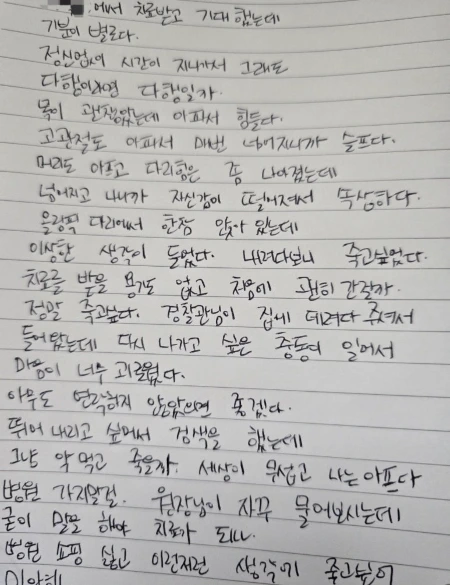 에서 치료받고 기대했는데
기분이 별로다.
정신없이 시간이 지나가서 그래도
다행이라면 다행일까.
목이 괜찮았는데 아파서 힘들다.
고관절도 아파서 매번 넘어지니까 슬프다.
머리도 아프고 다리힘은 좀 나아졌는데
넘어지고 나니까 자신감이 떨어져서 속상하다.
올림픽 다리에서 한참 앉아 있는데
이상한 생각이 들었다. 내려다보니 죽고싶었다.
치료를 받을 용기도 없고 처음에 괜히 간걸까.
정말 죽고싶다. 경찰관님이 집에 데려다 주셔서
들어왔는데 다시 나가고 싶은 충동이 일어서
마음이 너무 괴로웠다.
아무도 연락하지 않았으면 좋겠다.
뛰어 내리고 싶어서 검색을 했는데
그냥 약 먹고 죽을까. 세상이 무섭고 나는 아프다
병원 가지말걸. 원장님이 자꾸 물어보시는데
굳이 말을 해야 치료가 되나.
병원 쇼핑 싫고 이런저런 생각에 죽고싶어
미안해